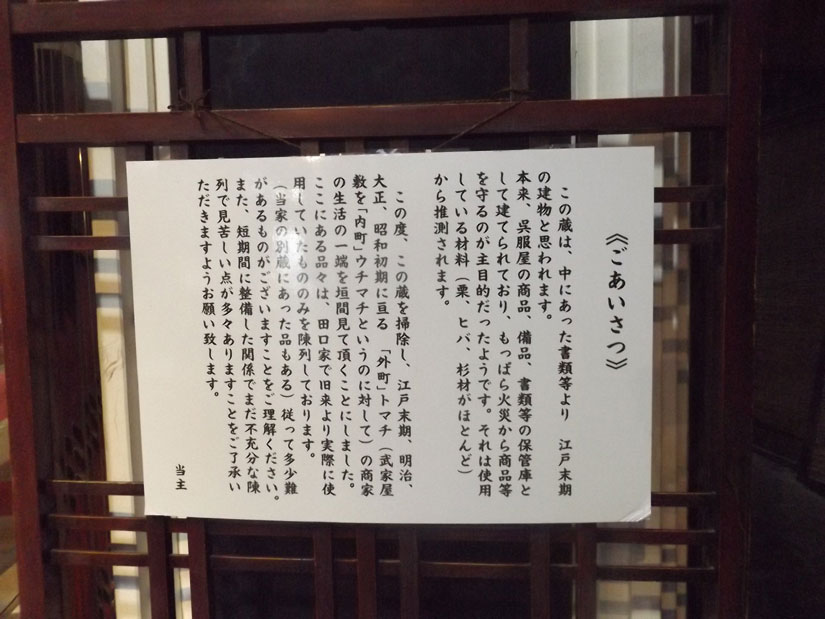 《ごあいさつ》
この蔵は、中にあった書類等より　江戸末期
の建物と思われます。
本来、呉服屋の商品、備品、書類等の保管庫と
して建てられており、もっぱら火災から商品等
を守るのが主目的だったようです。それは使用
している材料（栗、ヒバ、杉材がほとんど）
から推測されます。
この度、この蔵を掃除し、江戸末期、明治、
大正、昭和初期に亘る　「外町」トマチ（武家屋
敷を「内町」ウチマチというのに対して）の商家
の生活の一端を垣間見て頂くことにしました。
ここにある品々は、田口家で旧来より実際に使
用していたもののみを陳列しております。
（当家の別蔵にあった品もある）従って多少難
があるものがございますことをご理解ください。
また、短期間に整備した関係でまだ不充分な陳
列で見苦しい点が多々ありますことをご了承い
ただきますようお願い致します。
当主